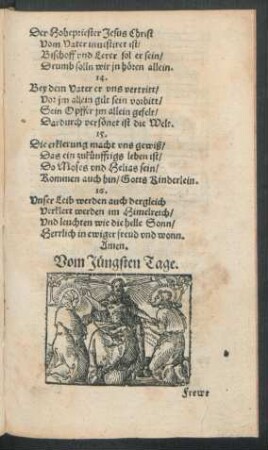 Der Hohepriester Jesus Christ
Vom Vater inuestiret ist/
Bischoff vnd Lerer sol er sein/
Drumb solln wir jn hören allein.
14.
Bey dem Vater er vns vertritt/
Vor jm allein gilt sein vorbitt/
Sein Opffer jm allein gefelt/
Dardurch versönet ist die Welt.
15.
Die erklerung macht vns gewiß/
Das ein zukünfftigs leben ist/
Do Moses vnd Helias sein/
Kommen auch hin/ Gotts Kinderlein.
16.
Vnser Leib werden auch dergleich
Verklert werden im Himelreich/
Vnd leuchten wie die helle Sonn/
Herrlich in ewiger freud vnd wonn.
Amen.
Vom Jüngsten Tage.
Frewt